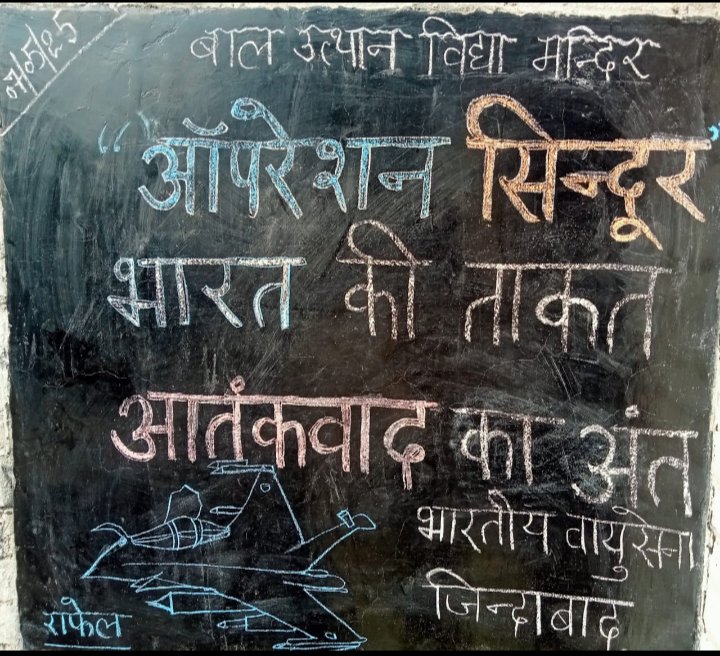 7/5/25
बाल उत्थान विद्या मन्दिर
"ऑपरेशन सिन्दूर"
भारत की ताकत
आतंकवाद का अंत
भारतीय वायुसेना
जिन्दाबाद
राफेल